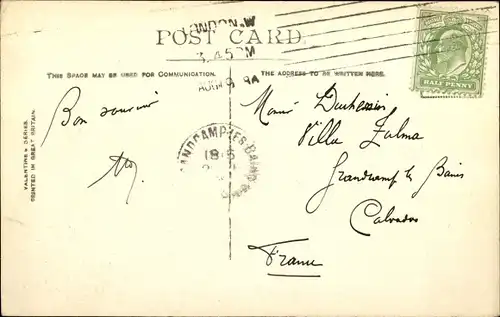 LONDON. W
3.45PM
POST CARD.
THIS SPACE MAY BE USED FOR COMMUNICATION.
THE ADDRESS TO BE WRITTEN HERE.
HALF PENNY
VALENTINE'S SERIES.
PRINTED IN GREAT BRITAIN.
Bon souvenir
GRANDCAMP-LES-BAINS
18-5
Villa Zalma
Grandcamp les Bains
Calvados
France